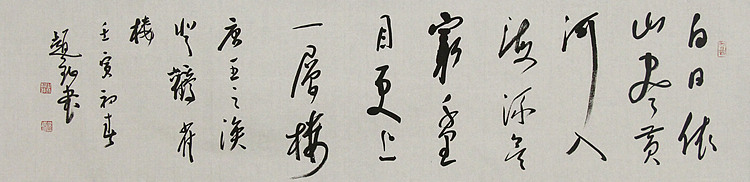 白日依
山尽黄
河入
海流欲
窮千里
目更上
一層楼
唐王之渙
登鸛雀
楼
壬寅初春
趙 书